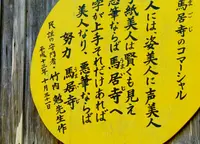 馬居寺のコマーシャル
美人には、姿美人に声美人
紙美人は賢くも見え
悪筆ならば 馬居寺へ
字が上手それだけあれば
美人なり、悪筆ならば
努力 馬居寺
民謡の専門者 竹内勉先生作
平成十三年十月三十一日